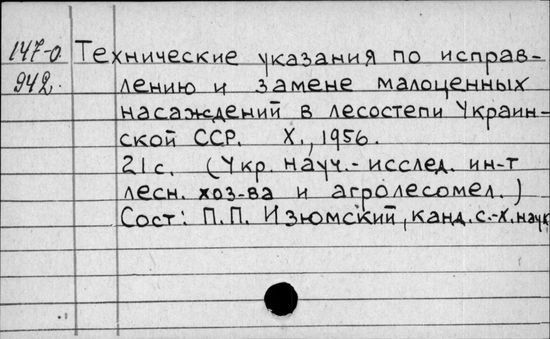 147-0 Технические указания по исправ-
942. лению и замене малоценных
насаждений в лесостепи Украин-
ской ССР. Х., 1956.
21 с. (Укр. науч.-исслед. ин-т
лесн. хоз-ва и агролесомел.)
Сост: П.П. Изюмский, канд. с.-х. наук